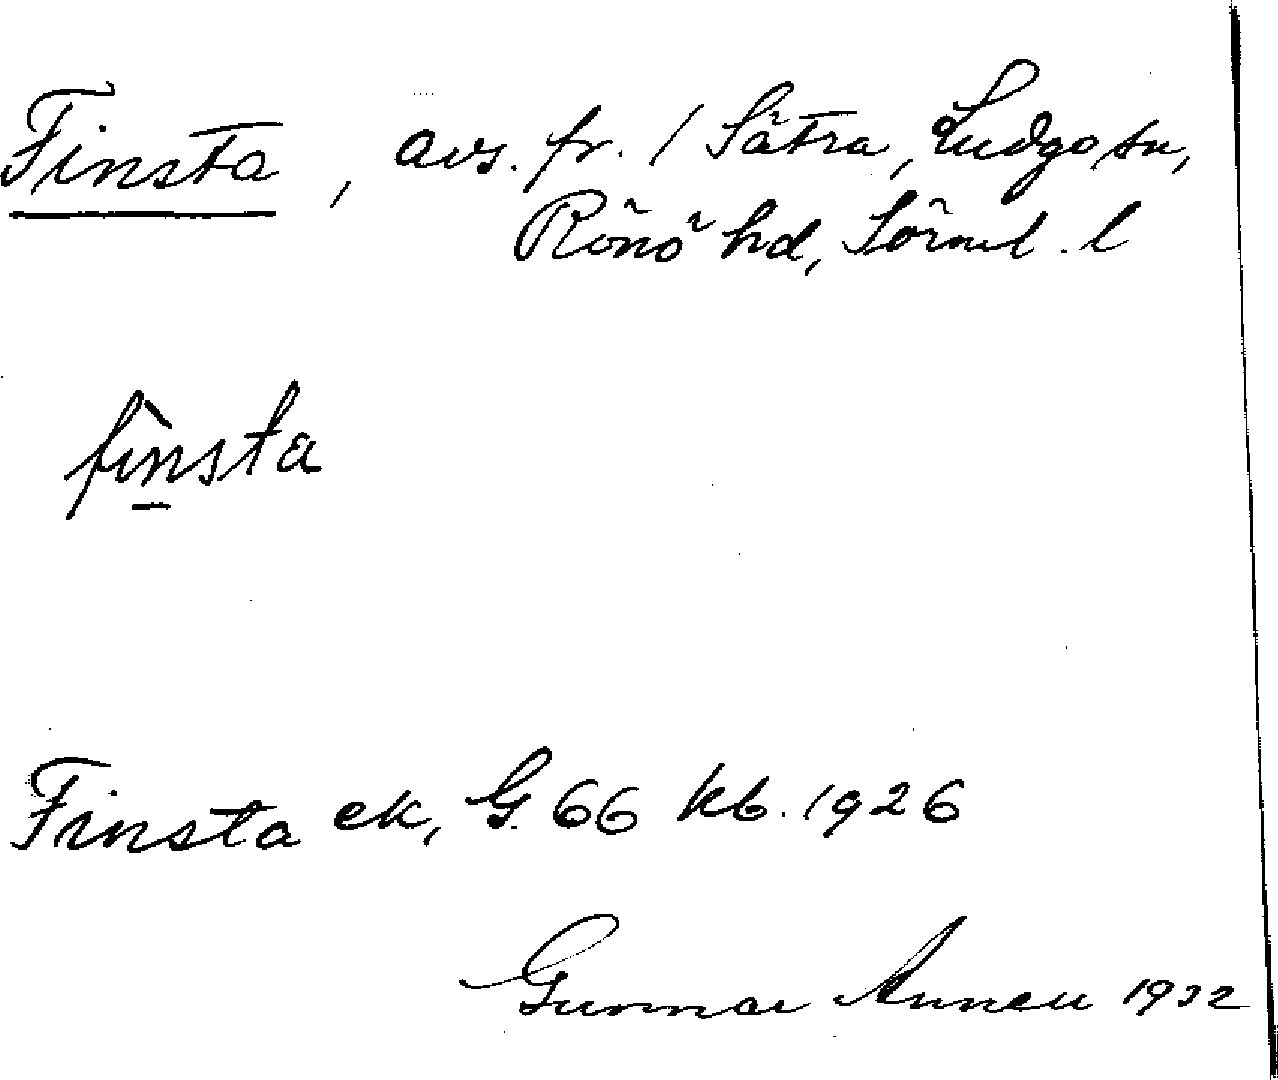 Finsta, avs. fr. 1 Sätra, Ludgo sn,
Rönö hd, Sörml. l
fìn̲sta
Finsta ek, G. 66 kb. 1926
Gunnar 1932